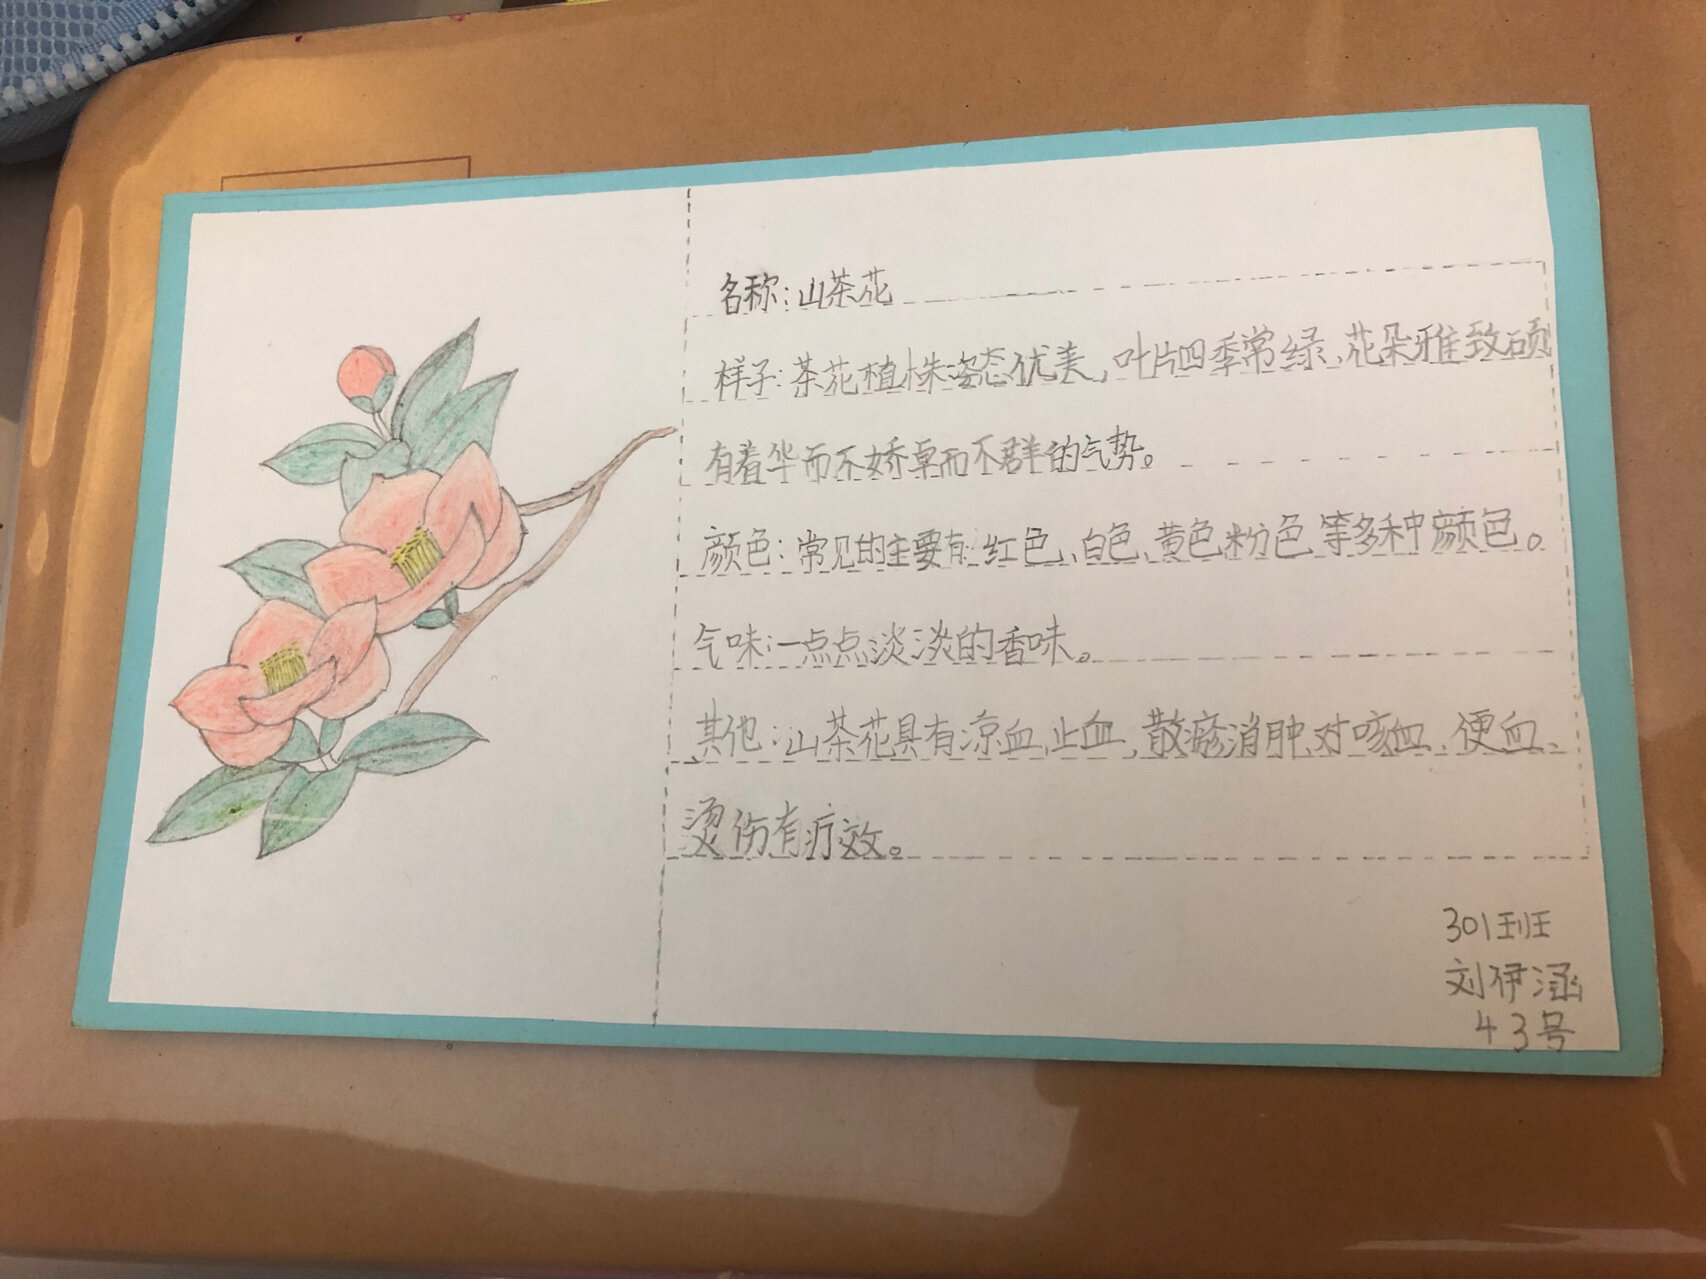 名称:山茶花
样子:茶花植株姿态优美,叶片四季常绿、花朵雅致硕
有着华而不娇卓而不群的气势。
颜色:常见的主要有:红色、白色、黄色粉色等多种颜色。
气味:一点点淡淡的香味。
其他:山茶花具有凉血、止血,散瘀消肿、对咳血、便血、
烫伤有疗效。
301班
刘伊涵
43号